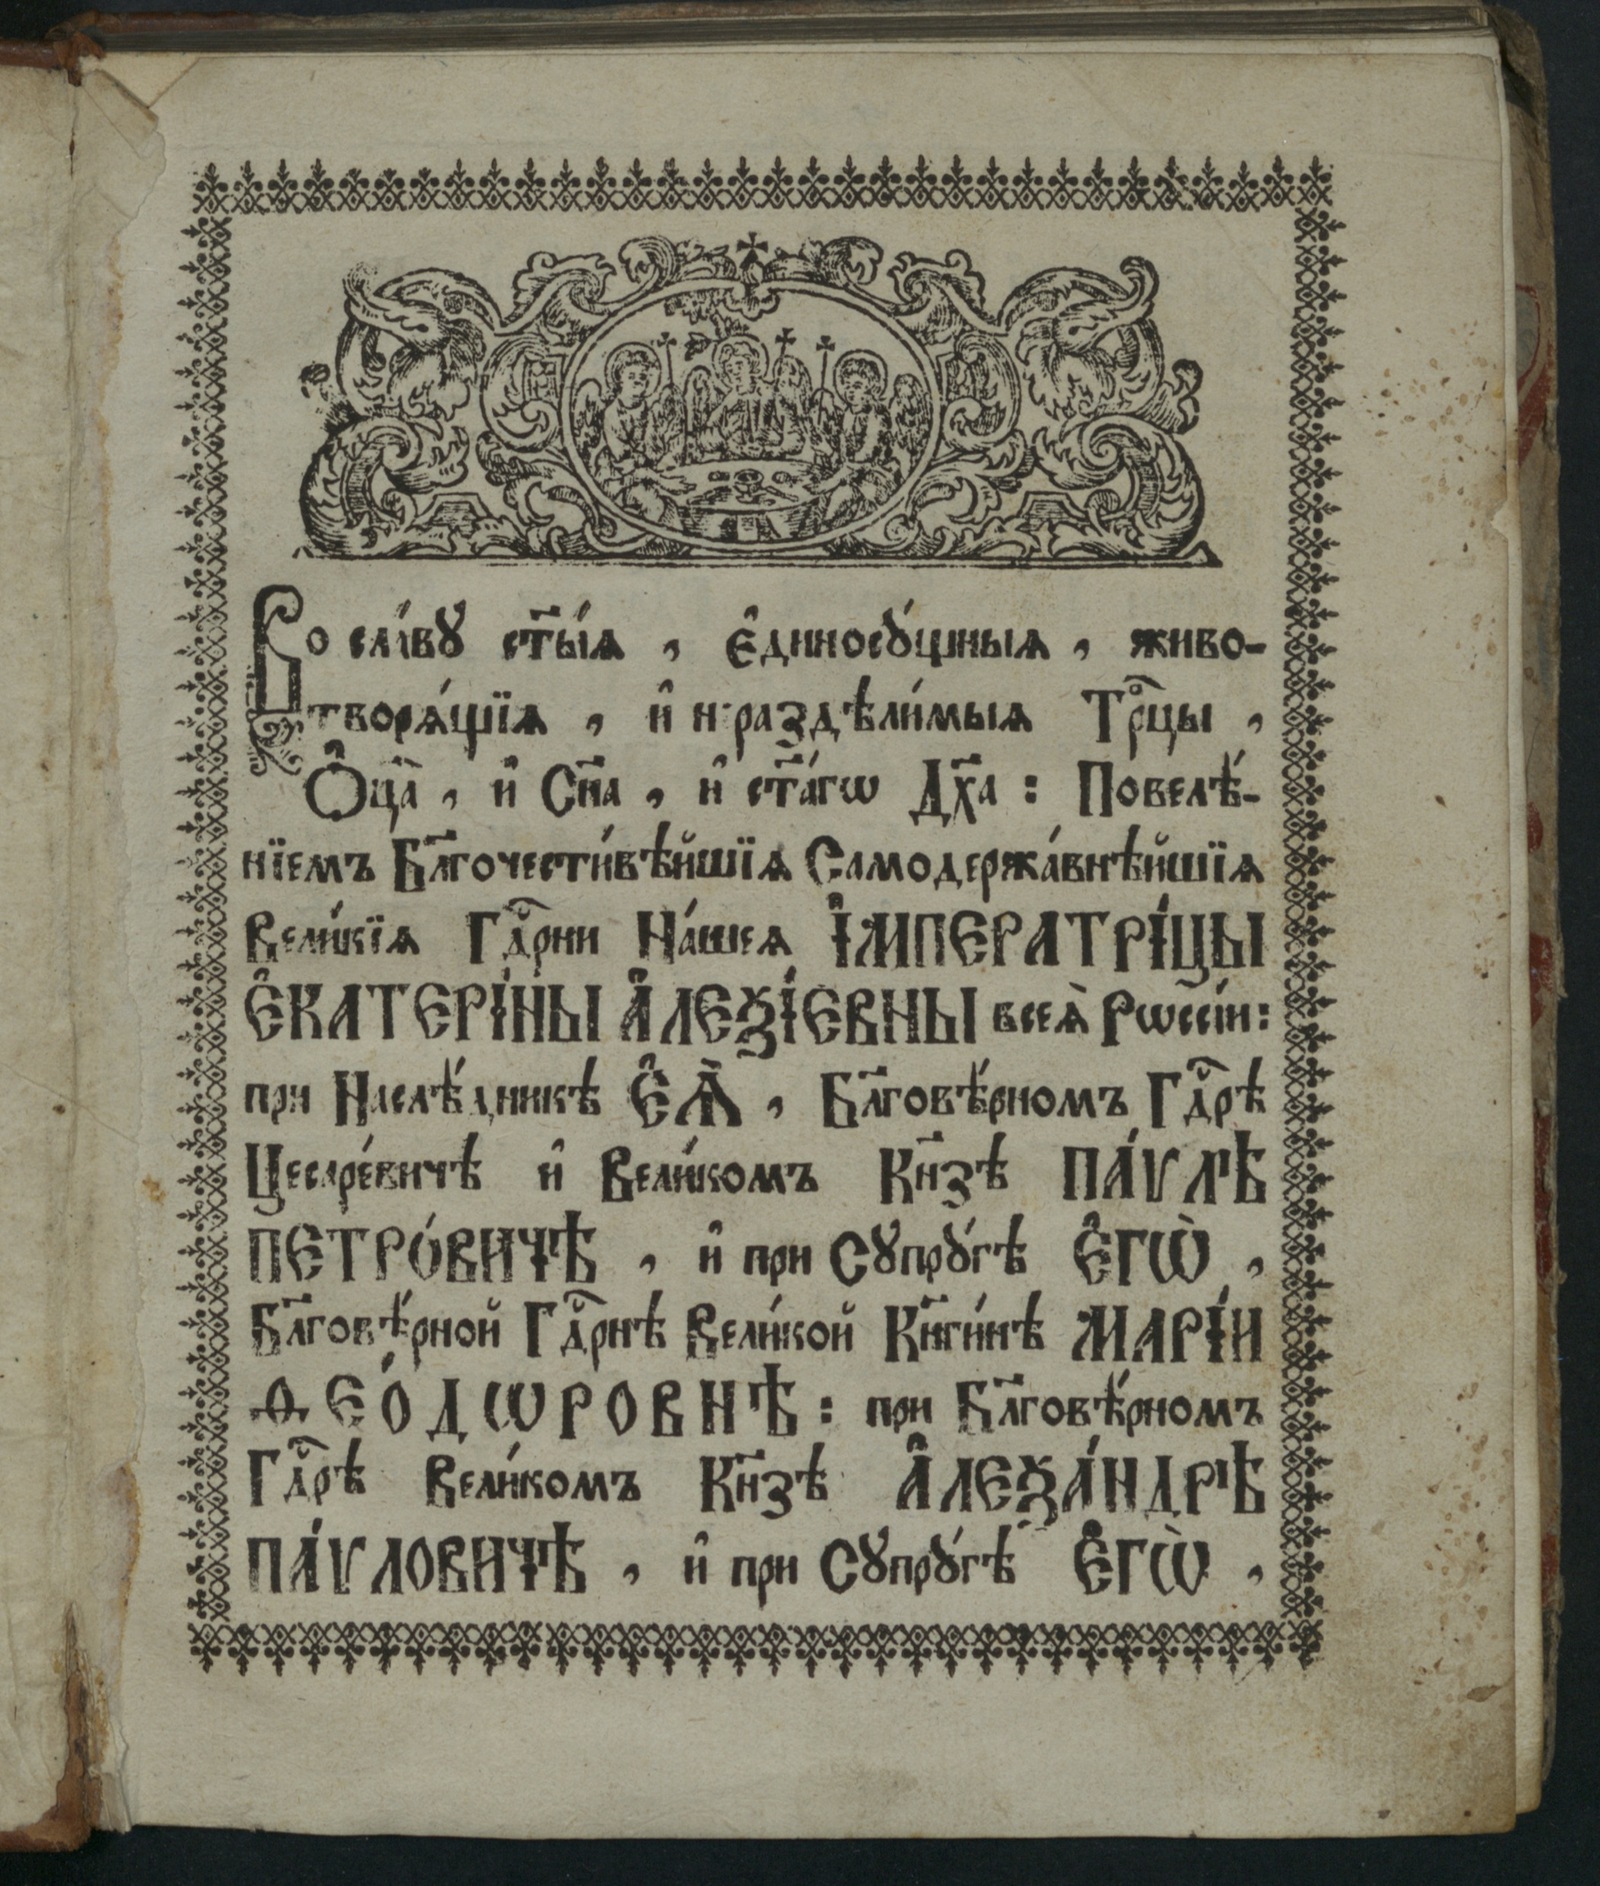 Во сла́вꙋ ст҃ы́ѧ , є҆диносꙋ́щныѧ , живо-
творѧ́щїѧ , и҆ нераздѣли́мыѧ Трⷪ҇цы ,
Ѻ҆ц҃а̀ , и҆ Сн҃а , и҆ ст҃а́гѡ Дх҃а : Повелѣ́-
нїемъ Бл҃гочести́вѣйшїѧ Самодержа́внѣйшїѧ
Вели́кїѧ Гдⷭ҇рни На́шеѧ І҆МПЕРАТРІ́ЦЫ
Є҆КАТЕРІ́НЫ А҆ЛЕѮІ́ЕВНЫ всеѧ̀ Рѡссі́и :
при Наслѣ́дникѣ Є҆Ѧ̀ , Бл҃говѣ́рномъ Гдⷭ҇рѣ
Цесаре́вичѣ и҆ Вели́комъ Кн҃зѣ ПА́ѴЛѢ
ПЕТРО́ВИЧѢ , и҆ при Сꙋпрꙋ́гѣ Є҆ГѠ̀ ,
Бл҃говѣ́рной Гдⷭ҇рнѣ Вели́кой Кн҃ги́нѣ МАРІ́И
ѲЕО́ДѠРОВНѢ : при Бл҃говѣ́рномъ
Гдⷭ҇рѣ Вели́комъ Кн҃зѣ А҆ЛЕѮА́НДРѢ
ПА́ѴЛОВИЧѢ , и҆ при Сꙋпрꙋ́гѣ Є҆ГѠ̀ ,